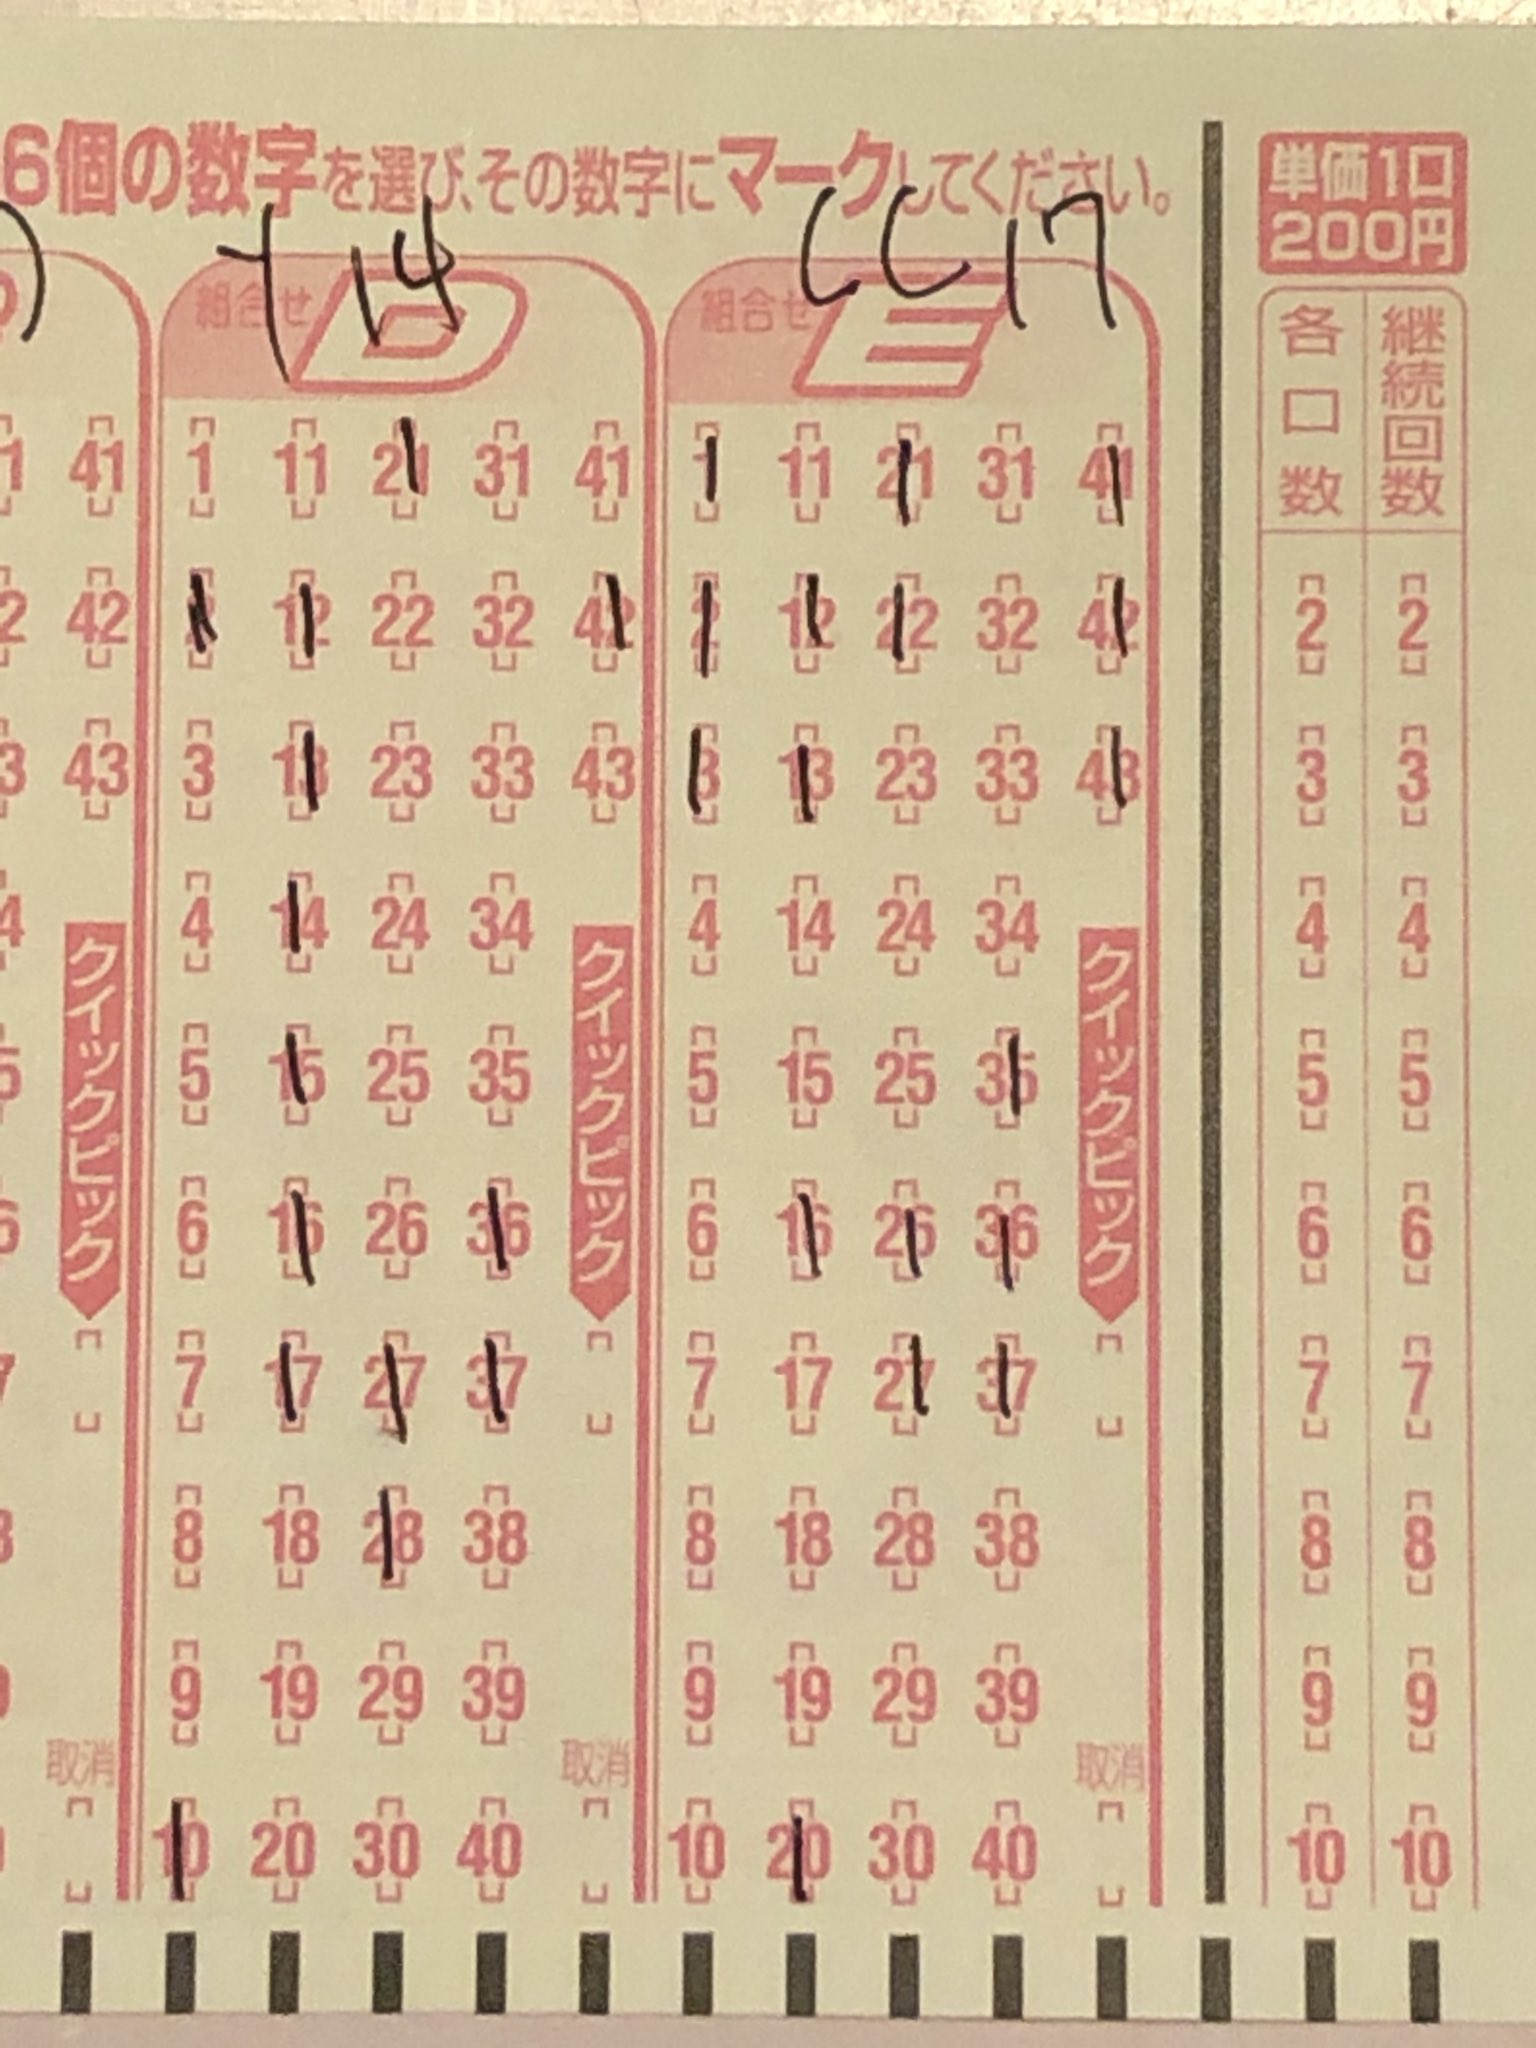 6個の数字を選び、その数字にマークしてください。
単価1口
200円
組合せ D
組合せ E
14
CC17
各口数
継続回数
1 41 1 11 21 31 41 1 11 21 31 41
2 42 2 12 22 32 42 2 12 22 32 42 2 2
3 43 3 13 23 33 43 3 13 23 33 43 3 3
4 4 14 24 34 4 14 24 34 4 4
5 5 15 25 35 5 15 25 35 5 5
6 6 16 26 36 6 16 26 36 6 6
クイックピック クイックピック クイックピック
7 7 17 27 37 7 17 27 37 7 7
8 8 18 28 38 8 18 28 38 8 8
9 9 19 29 39 9 19 29 39 9 9
取消 取消 取消
10 20 30 40 10 20 30 40 10 10